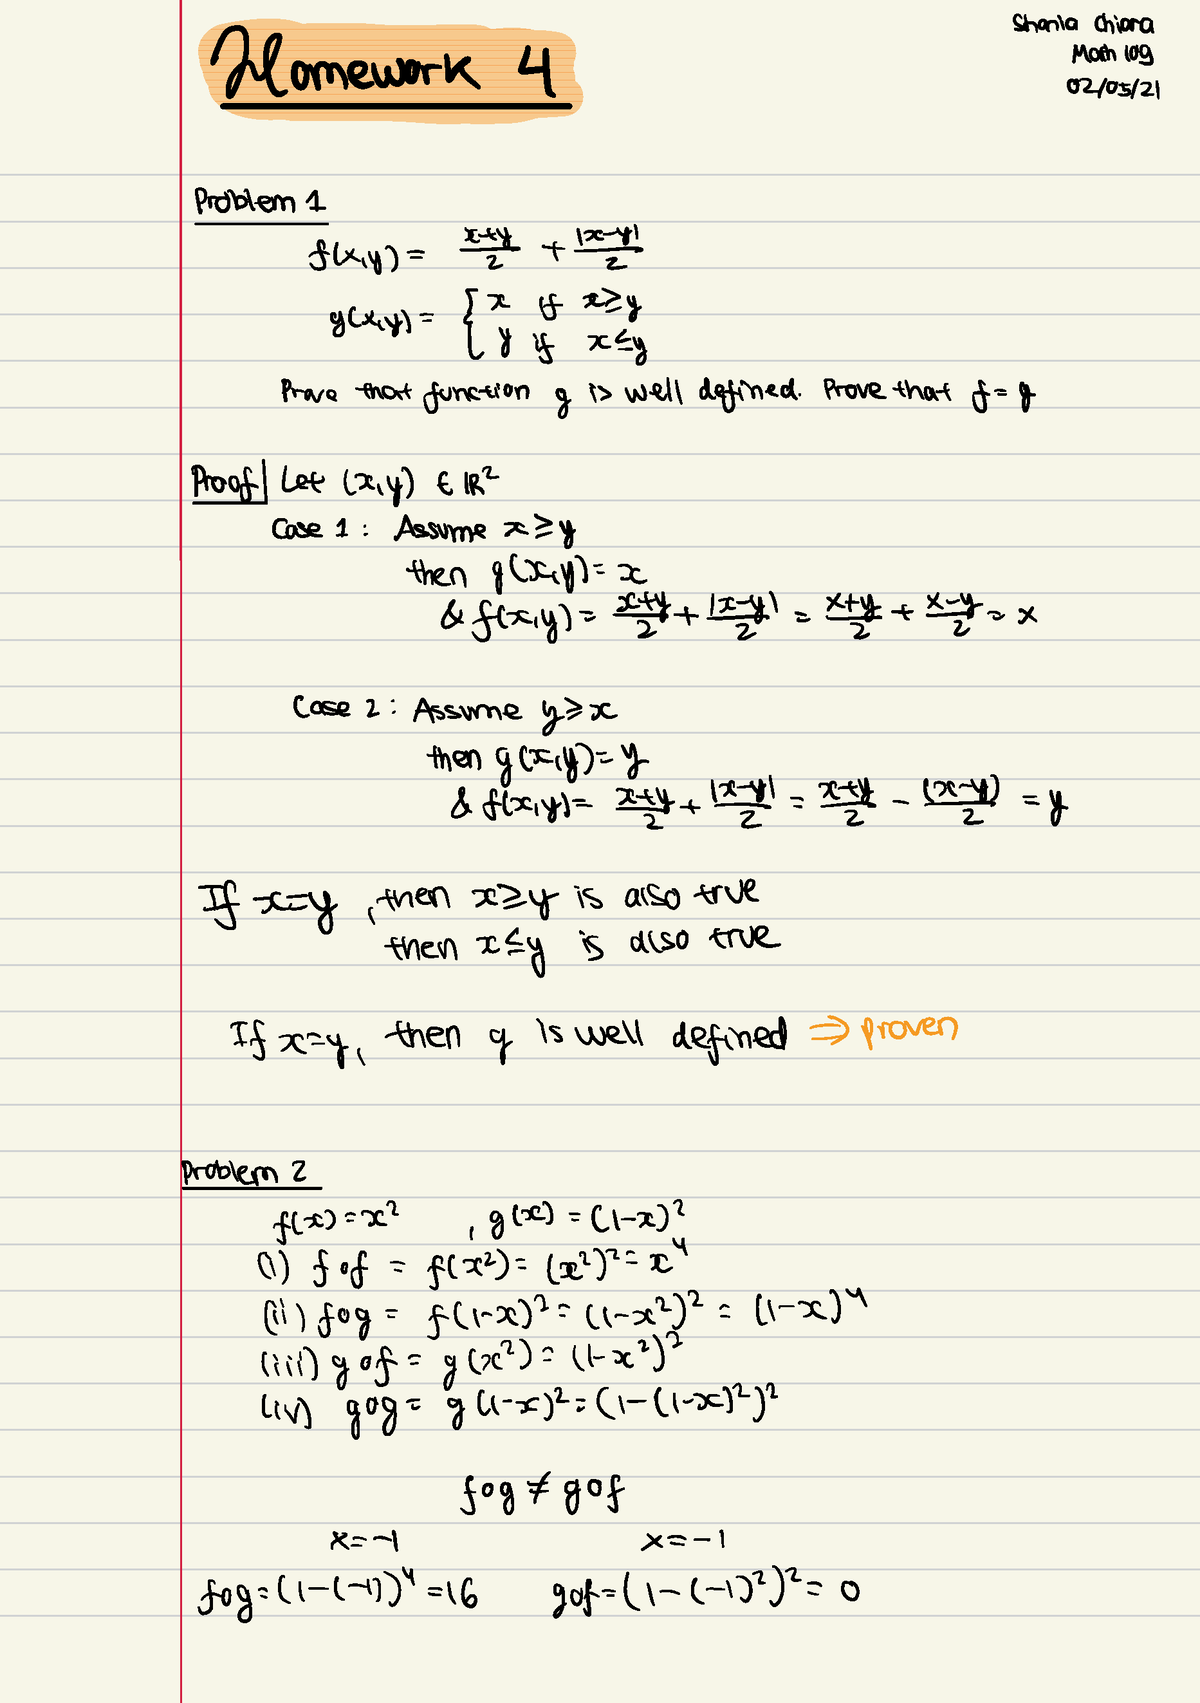 Homework 4
Shania Chiara
Math 109
02/05/21
Problem 1
f(x,y) = x+y/2 + |x-y|/2
g(x,y) = { x if x≥y
y if x≤y
Prove that function g is well defined. Prove that f=g
Proof| Let (x,y) ∈ ℝ²
Case 1: Assume x≥y
then g(x,y)= x
& f(x,y)= x+y/2 + |x-y|/2 = x+y/2 + x-y/2 = x
Case 2: Assume y≥x
then g(x,y)= y
& f(x,y)= x+y/2 + |x-y|/2 = x+y/2 - (x-y)/2 = y
If x=y, then x≥y is also true
then x≤y is also true
If x=y, then g is well defined ⇒ proven
Problem 2
f(x)=x² , g(x) = (1-x)²
(i) f∘f = f(x²)= (x²)²= x⁴
(ii) f∘g = f(1-x)²= (1-x²)² = (1-x)⁴
(iii) g∘f = g(x²)= (1-x²)²
(iv) g∘g= g(1-x)²= (1-(1-x)²)²
f∘g ≠ g∘f
x=-1 x=-1
f∘g=(1-(-1))⁴=16 g∘f=(1-(-1)²)²= 0